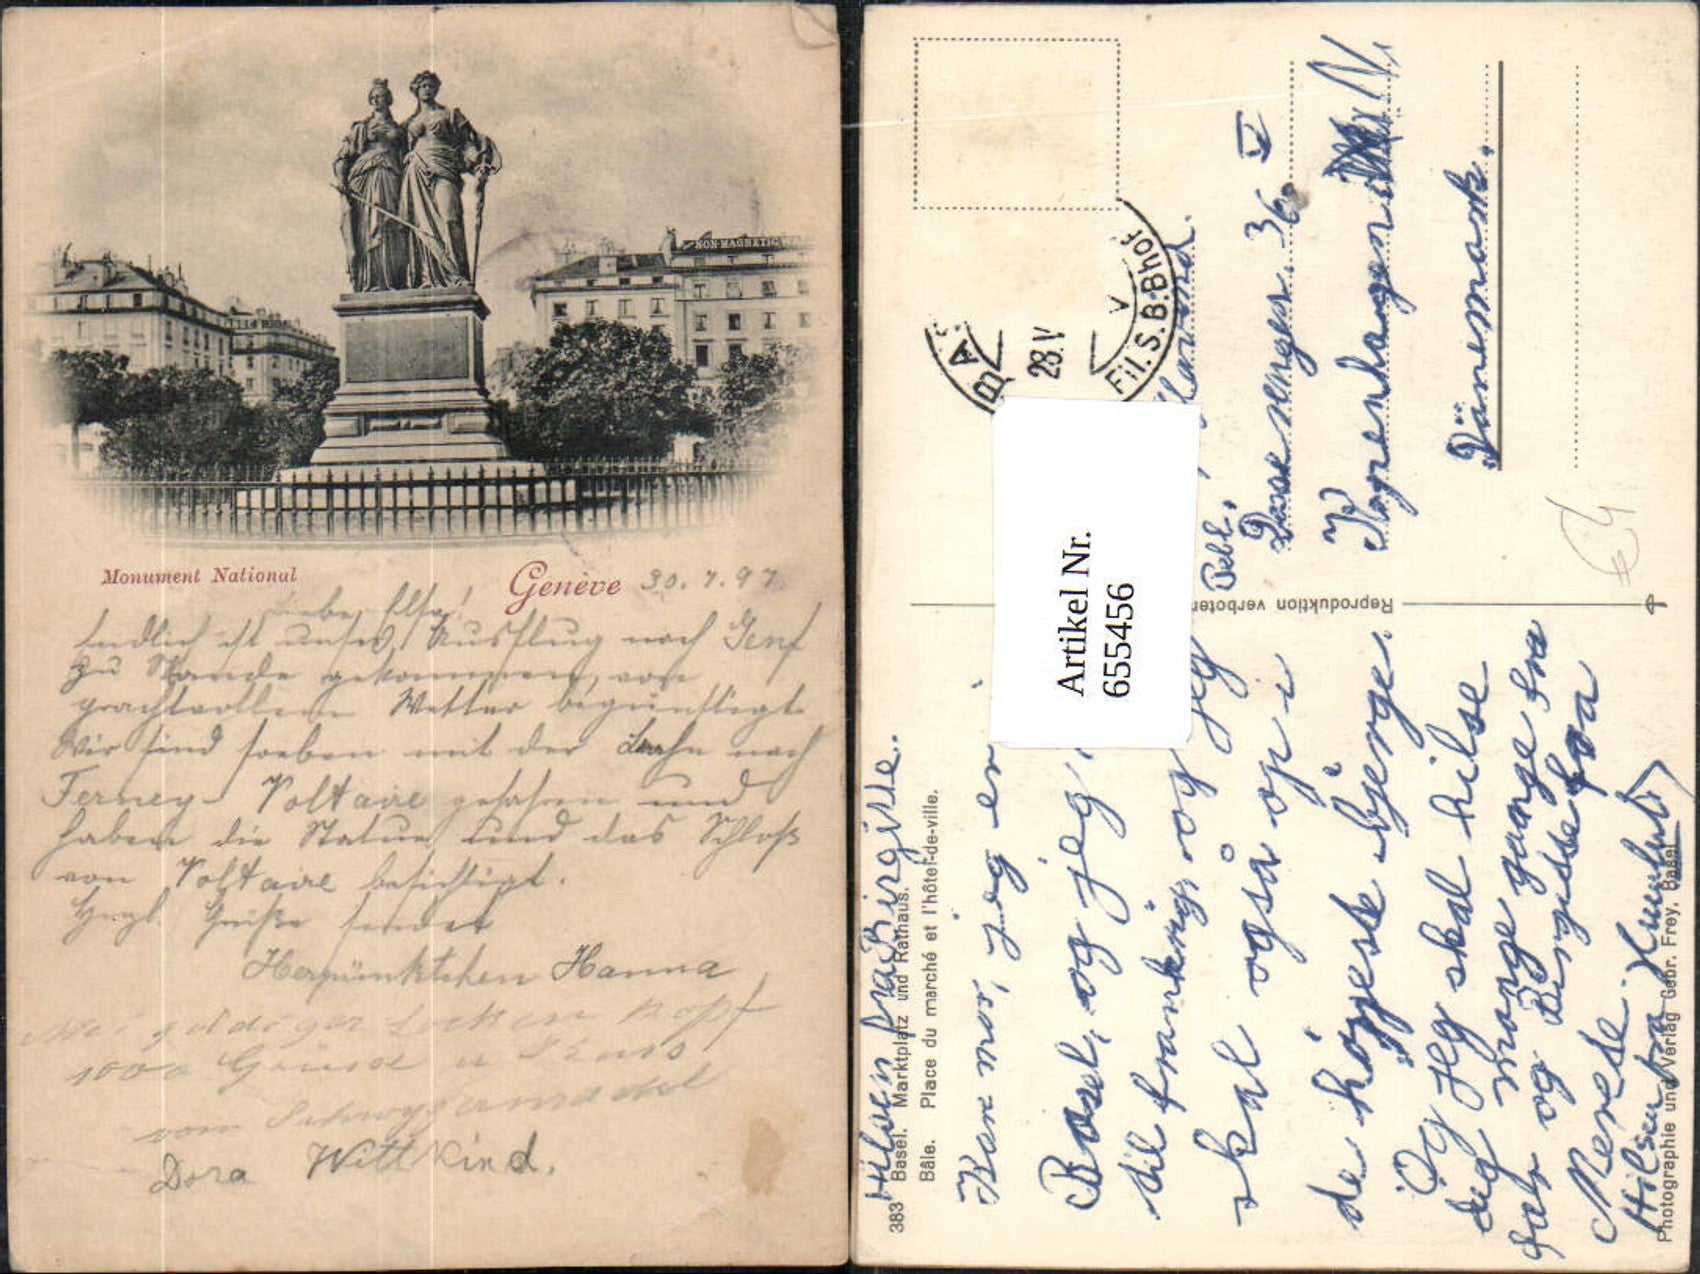 NON-MAGNETIC
Monument National
Genève 30.7.97.
Liebe Elsa!
Endlich ist unser Ausflug nach Genf
zu Stande gekommen, vom
prachtvollen Wetter begünstigt.
Wir sind soeben mit der Bahn nach
Ferney Voltaire gefahren und
haben die Statue und das Schloß
von Voltaire besichtigt.
Herzl. Grüße sendet
Hanna
1000 Grüße u Kuss
vom
Dora Wittkind.
Hilsen fra Birgitte.
383 Basel. Marktplatz und Rathaus.
Bâle. Place du marché et l'hôtel-de-ville.
Kære mor, jeg er i
Basel, og jeg
til frankrig, og jeg
skal også op i
de højeste bjerge.
Og jeg skal hilse
dig mange gange fra
far og Birgitte fra
Merete.
Hilsen fra
Photographie und Verlag Gebr. Frey, Basel
Reproduktion verboten
BAS
28.V
V
Fil.S.B.Bhof
36 V
Kopenhagen N.
Dänemark.
Artikel Nr.
655456
€4